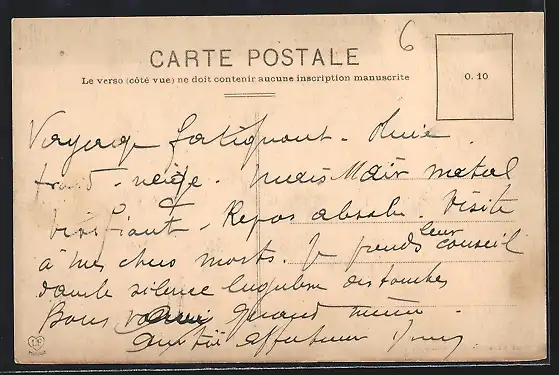 6
CARTE POSTALE
Le verso (côté vue) ne doit contenir aucune inscription manuscrite
0.10
Voyage fatiguant - Pluie
froid - neige - mais Mair natal
vivifiant - Repos absolu Visite
à mes chers morts. Je prends leur conseil
dans le silence lugubre des tombes
Bons quand même.
affectueux